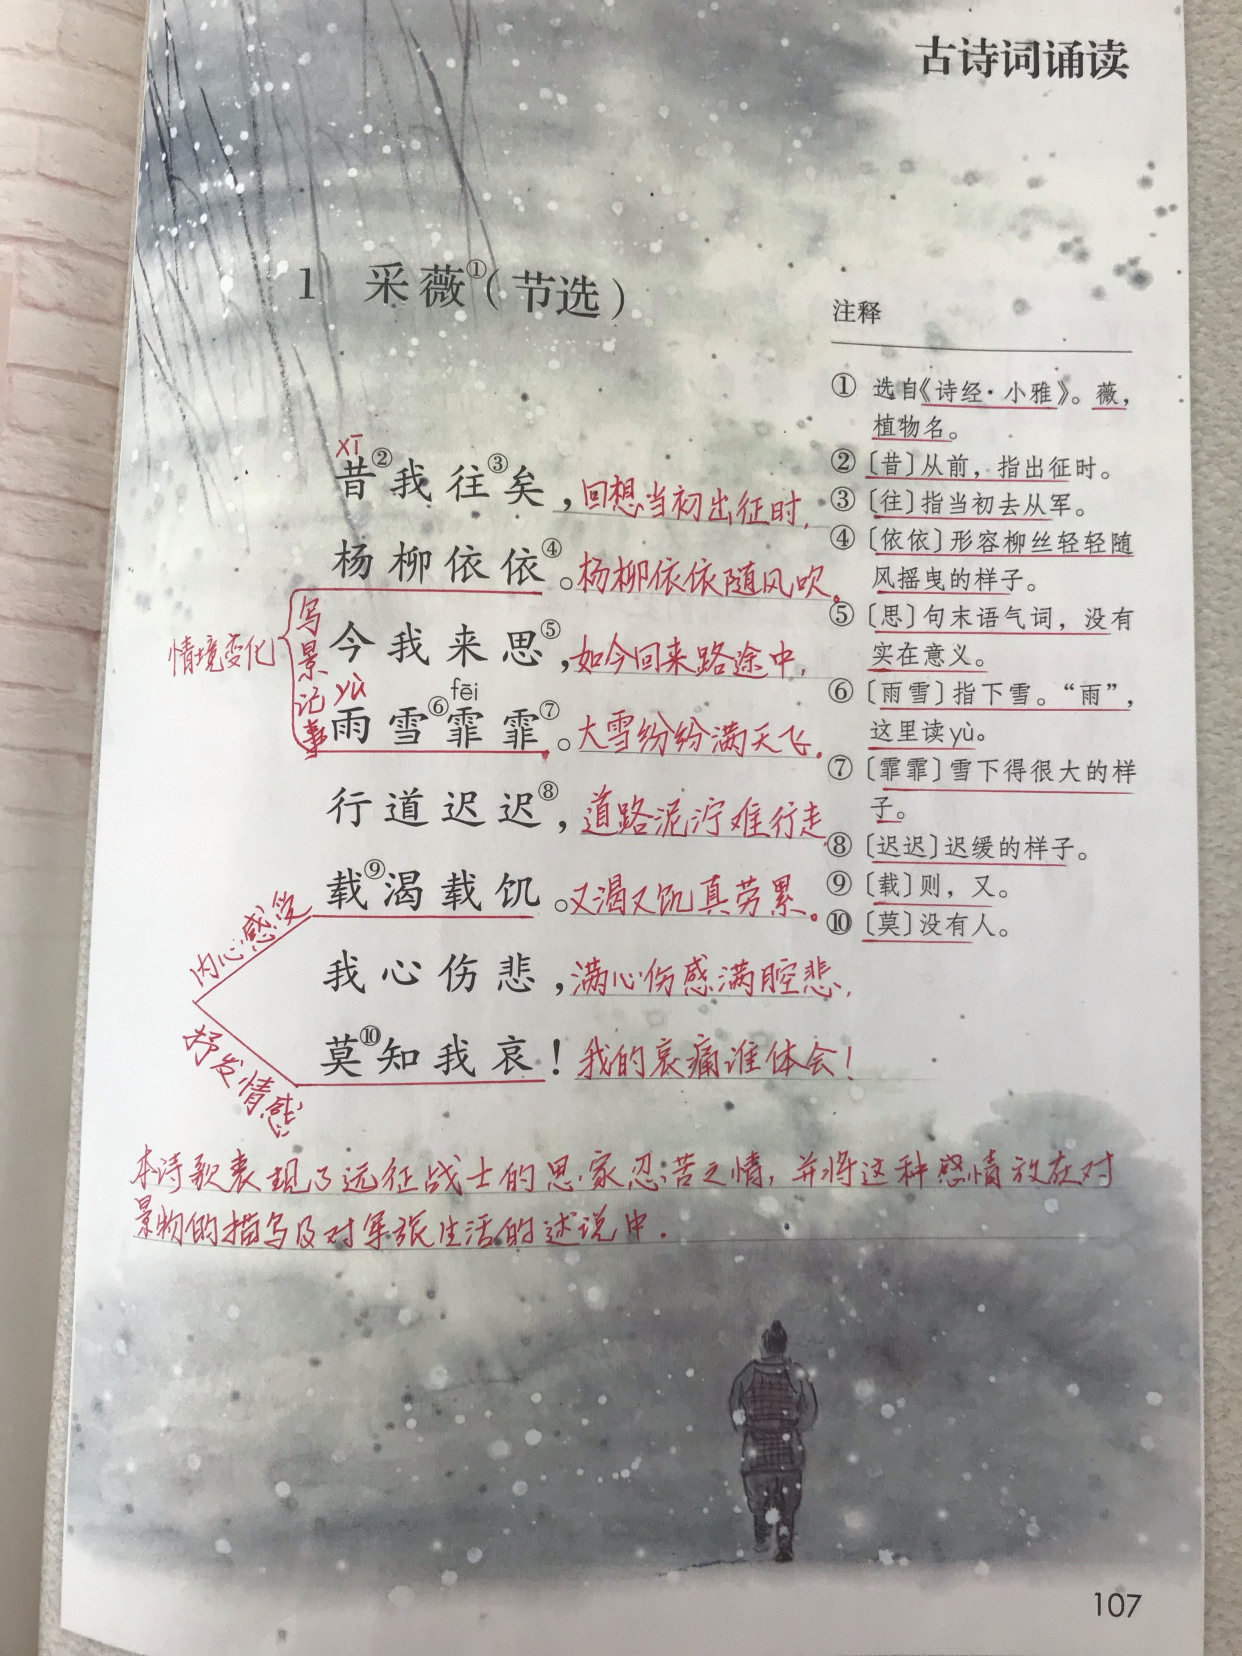 古诗词诵读
1 采薇①(节选)
xī
昔②我往③矣，回想当初出征时，
杨柳依依④。杨柳依依随风吹。
今我来思⑤，如今回来路途中，
yù fēi
雨雪⑥霏霏⑦。大雪纷纷满天飞。
行道迟迟⑧，道路泥泞难行走
载⑨渴载饥。又渴又饥真劳累。
我心伤悲，满心伤感满腔悲，
莫⑩知我哀！我的哀痛谁体会！
情境变化
写景记事
内心感受
抒发情感
本诗歌表现了远征战士的思家忍苦之情，并将这种感情放在对
景物的描写及对军旅生活的述说中.
注释
① 选自《诗经·小雅》。薇，
植物名。
②〔昔〕从前，指出征时。
③〔往〕指当初去从军。
④〔依依〕形容柳丝轻轻随
风摇曳的样子。
⑤〔思〕句末语气词，没有
实在意义。
⑥〔雨雪〕指下雪。“雨”，
这里读yù。
⑦〔霏霏〕雪下得很大的样
子。
⑧〔迟迟〕迟缓的样子。
⑨〔载〕则，又。
⑩〔莫〕没有人。
107